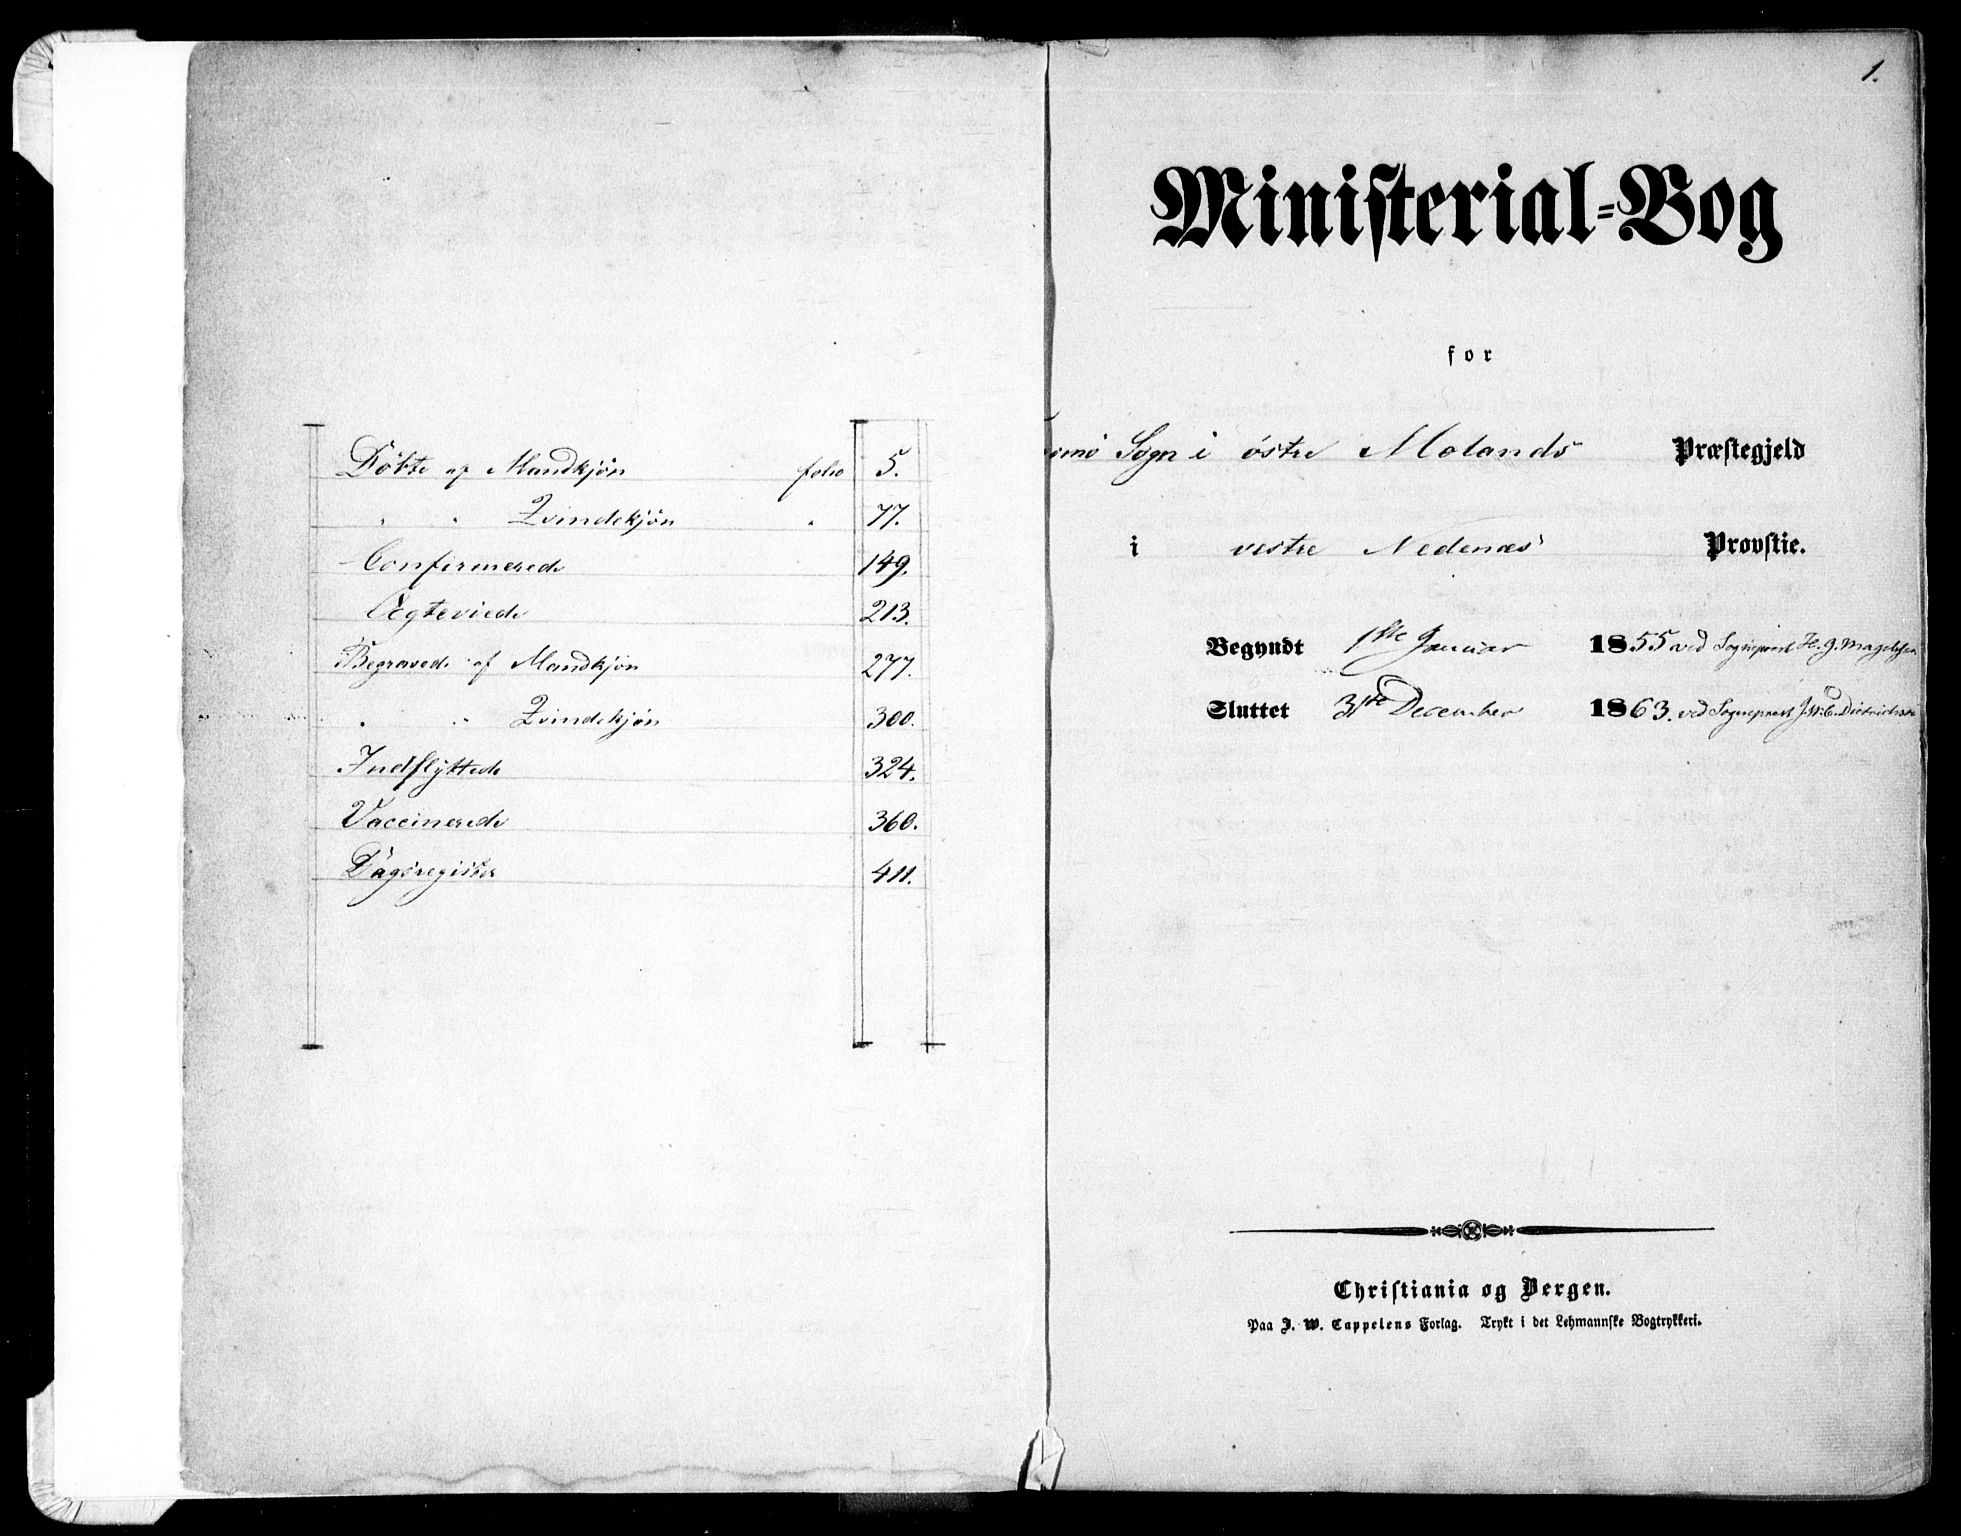 Döbte af Mandkjön folio 5.
" " Qvindekjön " 77.
Confirmerede 149.
Ægteviede 213.
Begravede af Mandkjön 277.
" " Qvindekjön 300.
Indflyttede 324.
Vaccinerede 360.
Dagsregister 411.
1.
Ministerial-Bog
for
Sogn i östre Molands Præstegjeld
i vestre Nedenæs Provstie.
Begyndt 1ste Januar 1855 ved Sognepræst H. J. Magelssen
Sluttet 31te December 1863. ved Sognepræst J. W. C. Dietrichson
Christiania og Bergen.
Paa J. W. Cappelens Forlag. Trykt i det Lehmannske Bogtrykkeri.